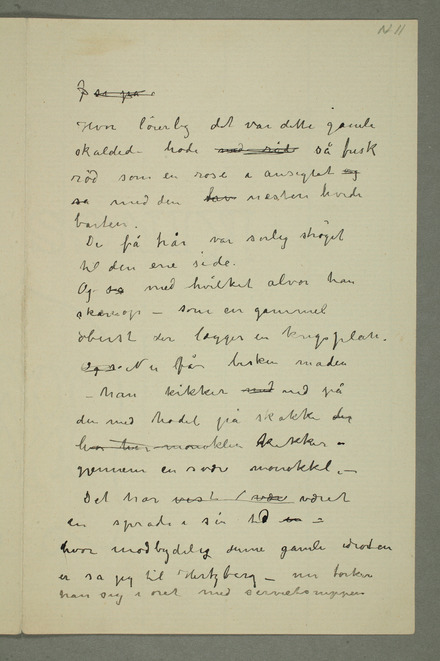 N 11
se på
Hvor løierlig det var dette gamle
skaldede hode med sit så frisk
rød som en rose i ansigtet og
så med den næsten hvide
barten.
De få hår var sorlig strøget
til den ene side.
Og så med hvilket alvor han
som en gammel
oberst der lægger en krigsplan.
Og så Nu får maden
– han kikker ned ned på
den med hodet på skakke
monoklen kikker
gjennem en svær monokkel. –
Det har vist / vær været
en sprade i sin tid
hvor modbydelig denne gamle idioten
er sa jeg til Hertzberg – nu
han sig i øret med servietsnippen